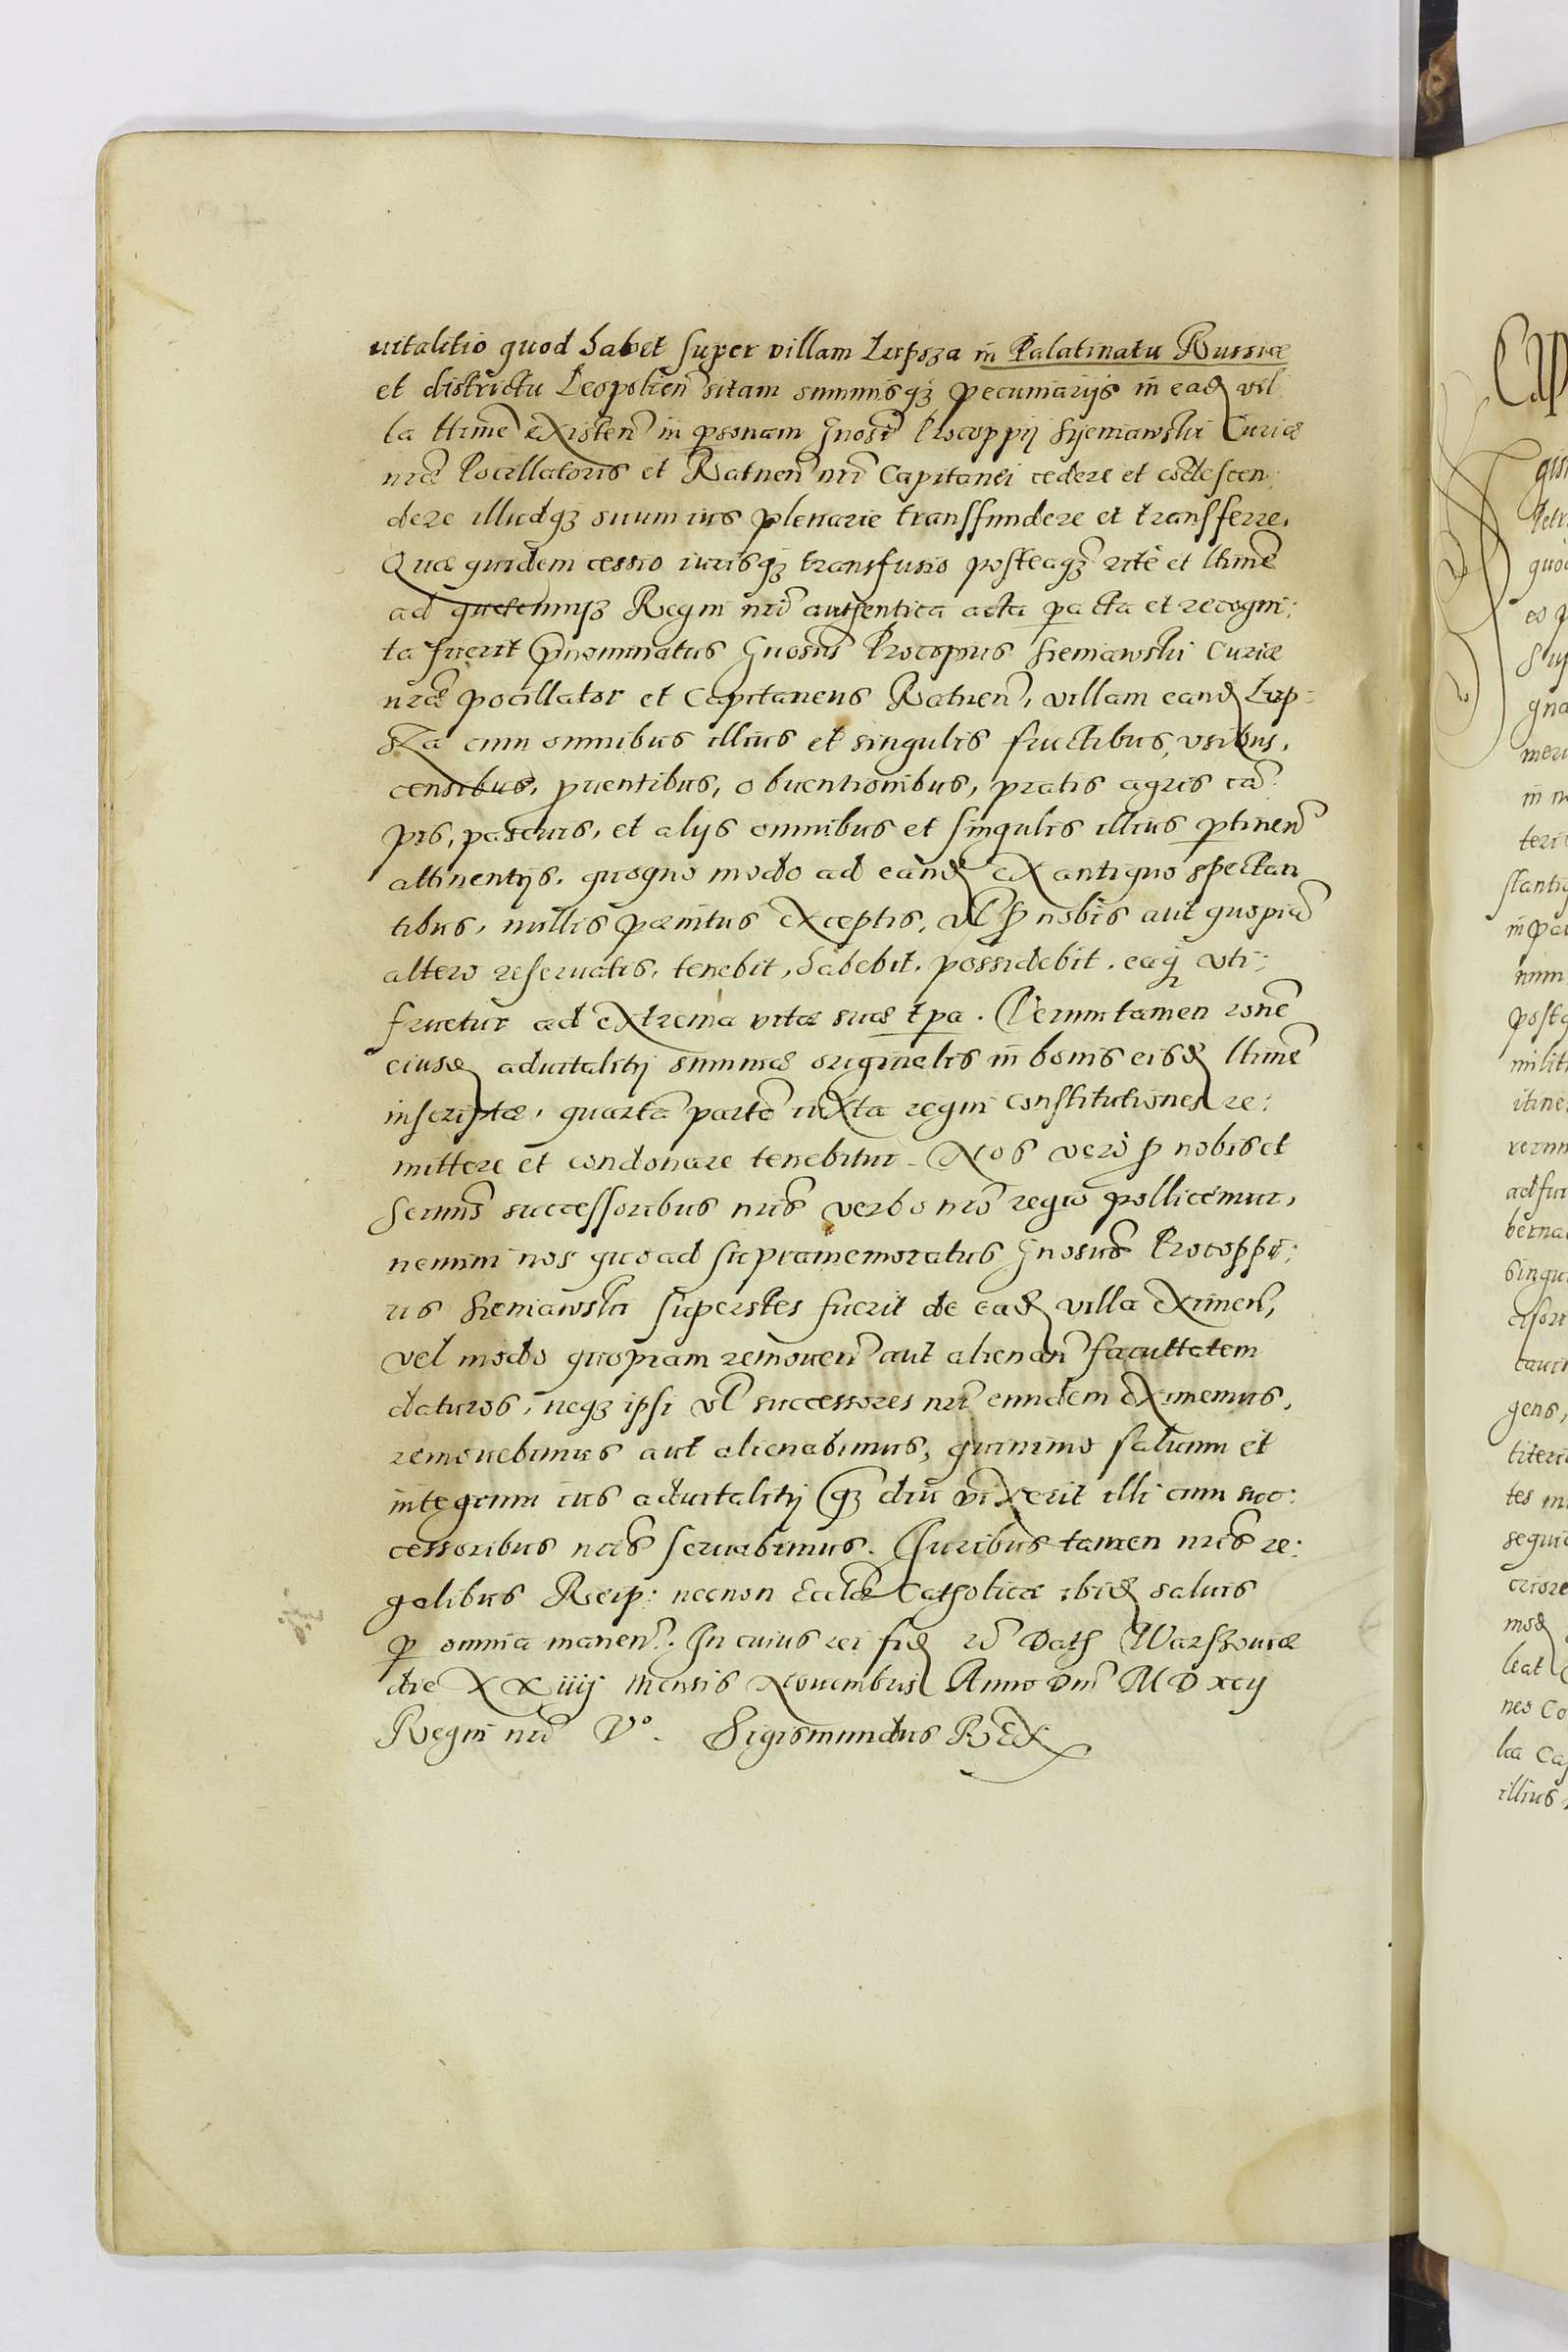 uitalitio quod habet super villam Lipsza in Palatinatu Russiæ
et districtu Leopolien̄ sitam summisq₃ pecuniarijs in ead vil
la lttime existen̄ in psonam Gnosi Procoppij Sijeniawski Curiæ
nræ Pocillatoris et Ratnen̄ nri Capitanei cedere et codescen:
dere illudq₃ suum ius plenarie transfundere et transferre.
Quæ quidem cessio iurisq₃ transfusio posteaq₃ ritè et lttime
ad quæcunq₃ Regni nri authentica acta pacta et recogni:
ta fuerit pnominatus Gnosus Procopius Sieniawski Curiæ
nræ pocillator et Capitaneus Ratnen̄, villam eand Lip:
sza cum omnibus illius et singulis fructibus, vsibus,
censibus, puentibus, obuentionibus, pratis agris cā:
pis, pascuis, et alijs omnibus et singulis illius ptinen̄
attinentijs, quoquo modo ad eand ex antiquo spectan
tibus, nullis pænitus exceptis, vl p nobis aut quopiā
altero reseruatis, tenebit, habebit, possidebit, eaq₃ vti:
fruetur ad extrema vitæ suæ tpa. Verumtamen rone
eiusd aduitalitij summæ originalis in bonis eisd lttime
inscriptæ, quartā partē iuxta regni constitutiones re:
mittere et condonare tenebitur. Nos verò p nobis et
Sermis successoribus nris verbo nro regio pollicemur,
nemini nos quoad supramemoratus Gnosus Procoppi:
us Sieniawski superstes fuerit de ead villa eximen̄,
vel modo quopiam remouen̄ aut alienan̄ facultatem
daturos, neq₃ ipsi vl successores nri eundem eximemus,
remouebimus aut alienabimus, quinimo saluum et
integrum ius aduitalitij q₃ diu vixerit illi cum suc:
cessoribus nris seruabimus. Iuribus tamen nris re:
galibus Reip: necnon Ecclæ Catholicæ ibid saluis
p omnia manen̄. In cuius rei fid rc̄ Dath Warszouiæ
die XXiiij mensis Nouembris Anno Dni MDxcij
Regni nri Vº. Sigismundus REX